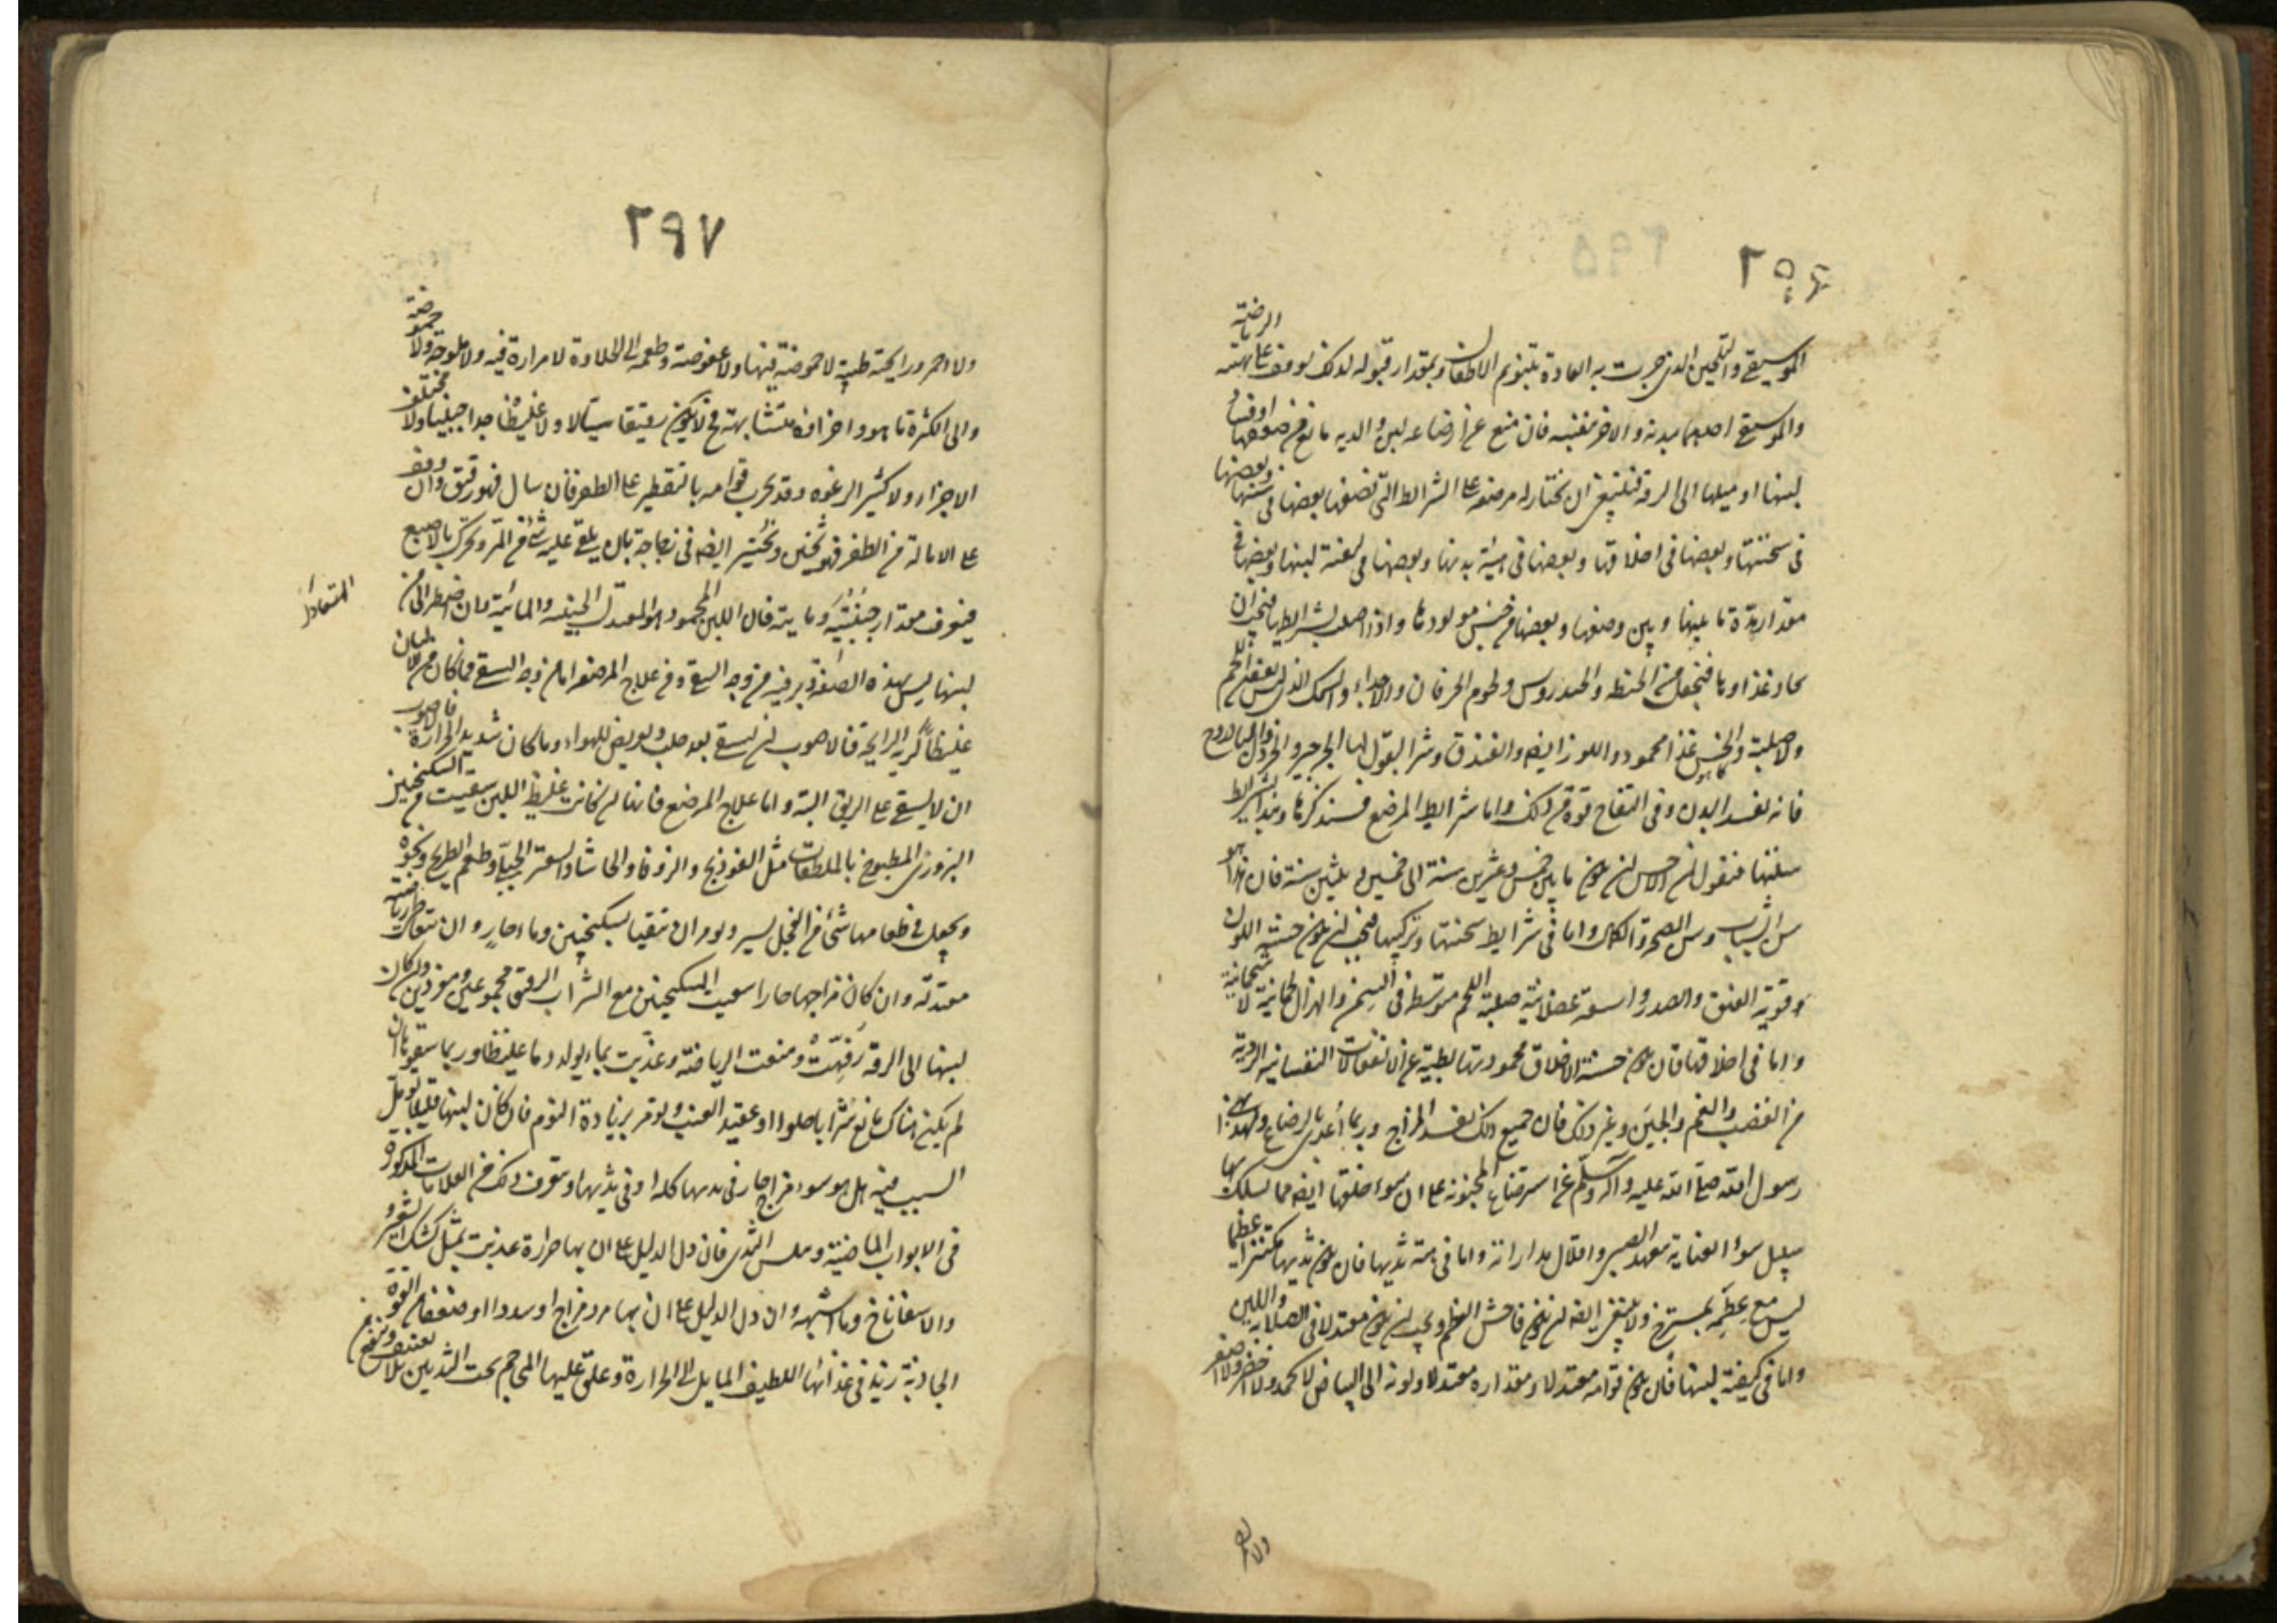 ٢٩٦
الموسيقى والتلحين الذى جرت به العادة بتنويم الاطفال وبمقدار قبوله لذلك يوقف على تهيئه للرياضة
والموسيقى احدهما ببدنه والاخر بنفسه فان منع عن ارضاعه لبن والدته مانع من ضعفها او فساد
لبنها او ميلها الى الرقة فينبغى ان يختار له مرضعة على الشرائط التى نصفها بعضها فى سنها وبعضها
فى سحنتها وبعضها فى اخلاقها وبعضها فى هيئة ثديها وبعضها فى كيفية لبنها وبعضها فى
مقدار مدة ما بينها وبين وضعها وبعضها من جنس مولودها واذا اصبت بشرائطها فيجب ان
يجاد غذاؤها فيجعل من الحنطة والخندروس ولحوم الخرفان والاجداء والسمك الذى ليس بعفن اللحم
ولا صلبه والخس غذا محمود واللوز ايضا والبندق وشر البقول لها الجرجير والخردل والباذروج
فانه يفسد اللبن وفى النعناع قوة من ذلك واما شرائط المرضع فسنذكرها ونبدأ بشرائط
سنها فنقول ان الاحسن ان يكون ما بين خمس وعشرين سنة الى خمس وثلثين سنة فان هذا هو
سن الشباب وسن الصحة والكمال واما فى شرائط سحنتها وتركيبها فيجب ان يكون حسنة اللون
وقوية العنق والصدر واسعته عضلانية صلبة اللحم متوسطة فى السمن والهزال لحمانية لا شحمانية
واما فى اخلاقها فان يكون حسنة الاخلاق محمودتها بطيئة عن الانفعالات النفسانية الردية
من الغضب والغم والجبن وغير ذلك فان جميع ذلك يفسد المزاج وربما اعدى بالرضاع ولهذا نهى
رسول الله صلى الله عليه وآله وسلم عن استرضاع المجنونة على ان سوء خلقها ايضا مما يسلك بها
سبيل سوء العناية بتعهد الصبى واقلال مداراته واما فى هيئة ثديها فان يكون ثديها مكتنزا عظيما
ليس مع عظمه بمسترخ ولا ينبغى ايضا ان يكون فاحش العظم ويجب ان يكون معتدلا فى الصلابة واللين
واما فى كيفية لبنها فان يكون قوامه معتدلا ومقداره معتدلا ولونه الى البياض لا كمد ولا اخضر ولا اصفر
٢٩٧
ولا احمر ورايحته طيبة لا حموضة فيها ولا عفوصة وطعمه الى الحلاوة لا مرارة فيه ولا ملوحة ولا حموضة
والى الكثرة ما هو واجزاؤه متشابهة فح لا يكون رقيقا سيالا ولا غليظا جدا جبنيا ولا مختلف
الاجزاء ولا كثير الرغوة وقد يجرب قوامه بالتقطير على الظفر فان سال فهو رقيق وان وقف
على الامالة من الظفر فهو ثخين ويختبر ايضا فى زجاجة بان يلقى عليه شئ من المر ويحرك بالاصبع
فيعرف مقدار جبنيته ومايته فان اللبن المحمود هو المعتدل الجبنية والمائية فان اضطر الى من
المتعادل
لبنها ليس بهذه الصفة دبر فيه من وجه السقى ومن علاج المرضعة اما من وجه السقى فما كان من الالبان
غليظا كريه الرايحة فالاصوب ان يسقى بعد حلب ويعرض للهواء وما كان شديد الحرارة فالاصوب
ان لا يسقى على الريق البتة واما علاج المرضع فانها ان كانت غليظة اللبن سقيت من السكنجبين
البزورى المطبوخ بالملطفات مثل الفوذنج والزوفا والحاشا والصعتر الجبلى وطعم الطريخ ونحوه
ويجعل فى طعامها شئ من الفجل يسير ويؤمر ان تتقيأ بسكنجبين وماء حار وان تتعاطى رياضة
معتدلة وان كان مزاجها حارا سقيت السكنجبين مع الشراب الرقيق مجموعين ومفردين وان كان
لبنها الى الرقة رفهت ومنعت الرياضة وغذيت بما يولد دما غليظا وربما سقوها ان
لم يكن هناك مانع شرابا حلوا او عقيد العنب ويؤمر بزيادة النوم فان كان لبنها قليلا تؤمل
السبب فيه هل هو سوء مزاج حار فى بدنها كله او فى ثديها وتعرف ذلك من العلامات المذكورة
فى الابواب الماضية ويلمس الثدى فان دل الدليل على ان بها حرارة غذيت بمثل كشك الشعير و
والاسفاناخ وما اشبهه وان دل الدليل على ان بها برد مزاج او سددا او ضعفا من القوة
الجاذبة زيد فى غذائها اللطيف المايل الى الحرارة وعلق عليها المحاجم تحت الثديين بلا تعنيف وينفع من